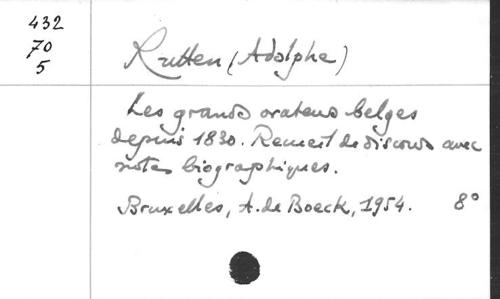 432
70
5
Rutten (Adolphe)
Les grands orateurs belges
depuis 1830. Recueil de discours avec
notes biographiques.
Bruxelles, A. de Boeck, 1954. 8°